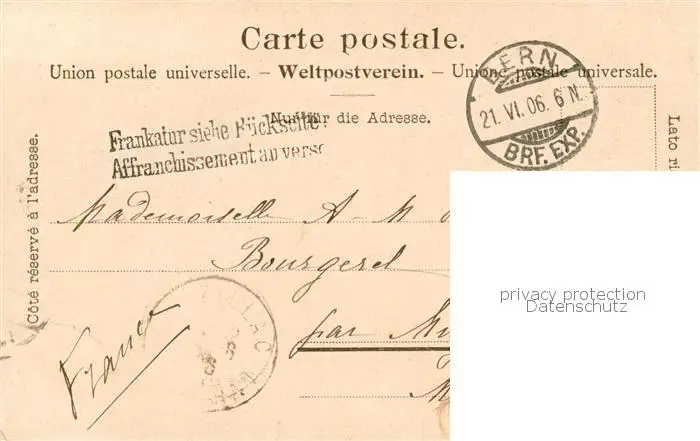 Carte postale.
Union postale universelle. – Weltpostverein. – Unione postale universale.
Nur für die Adresse.
BERN
21. VI. 06. 6 N.
BRF. EXP.
Frankatur siehe Rückseite
Affranchissement au verso
Côté réservé à l'adresse.
Lato ri
Mademoiselle A - M
Bourgerel
par
France
privacy protection
Datenschutz